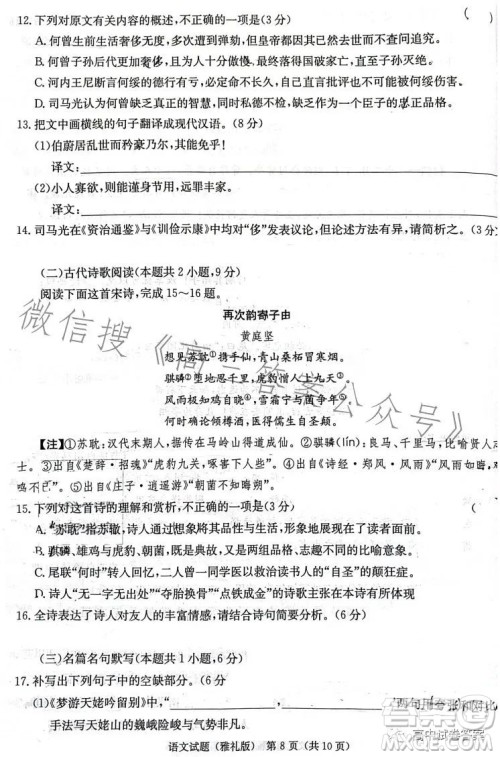 12. 下列对原文有关内容的概述，不正确的一项是(3分) (
A. 何曾生前生活奢侈无度，多人提出批评，但皇帝都因其是重臣而不查问追究。
B. 何曾子孙后代更加奢侈，且为人十分傲慢，最终落得国破家亡，直至子孙灭绝。
C. 河内王尼断言何绥的德行有亏，必定命不长久，自大自负引来灾祸，直至失去性命。
D. 司马光认为何曾缺乏真正的智慧，同时私德不检，缺乏作为一个臣子的忠正品格。
13. 把文中画横线的句子翻译成现代汉语。(8分)
(1)伯蔚居乱世而矜豪乃尔，其能免乎！
译文：
(2)小人寡欲，则能谨身节用，远罪丰家。
译文：
14. 司马光在《资治通鉴》与《训俭示康》中均对“侈”发表议论，但论述方法有异，请简析之。(3分
(二)古代诗歌阅读(本题共2小题，9分)
阅读下面这首宋诗，完成15～16题。
再次韵寄子由
黄庭坚
想见苏耽①携手仙，青山桑柘冒寒烟。
骐驎②堕地思千里，虎豹憎人上九天③。
风雨极知鸡自晓④，雪霜宁与菌争年⑤。
何时确论倾樽酒，医得儒生自圣颠。
【注】①苏耽：汉代末期人，据传在马岭山得道成仙。②骐驎(lín)：良马、千里马，代指杰出人
士。③出自《楚辞·招魂》“虎豹九关，啄害下人些”。④出自《诗经·郑风·风雨》“风雨如晦，
鸣不已”。⑤出自《庄子·逍遥游》“朝菌不知晦朔”。
15. 下列对这首诗的理解和赏析，不正确的一项是(3分) (
A. “苏耽”暗指苏辙，诗人通过想象将其品性与生活，形象可感地展示在了读者面前。
B. 骐驎、雄鸡与虎豹、朝菌，是两组品格、志趣不同的比喻意象。
C. 尾联“何时”转入回忆，二人曾一同尝试以医学救治读书人的“自圣”的颠狂症。
D. 江西诗派“无一字无来处”“夺胎换骨”“点铁成金”的诗歌主张在本诗有所体现
16. 全诗表达了诗人对友人的丰富情感，请结合诗句简要分析。(6分)
(三)名篇名句默写(本题共1小题，6分)
17. 补写出下列句子中的空缺部分。(6分)
(1)《梦游天姥吟留别》中，“ ， ”两句用夸张和对比
手法写天姥山的巍峨险峻与气势非凡。
语文试题（雅礼版） 第8页（共10页）
微信搜《高三答案公众号》
高中试卷答案